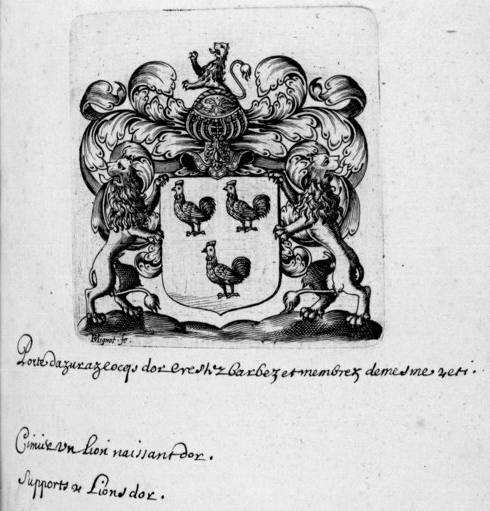 Mignot fe.
Porte dazur a 3 cocqs dor crestez barbez et membrez de mesme 2 et i.
Cimier vn Lion naissant dor.
Supports 2 Lions dor.